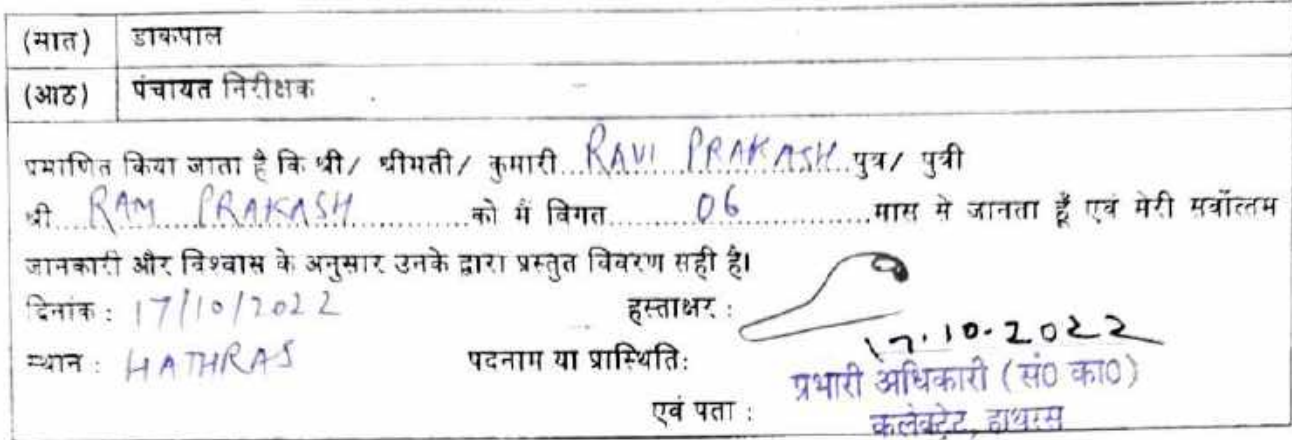 (सात) डाकपाल
(आठ) पंचायत निरीक्षक
प्रमाणित किया जाता है कि श्री/ श्रीमती/ कुमारी...RAVI PRAKASH...पुत्र/ पुत्री
श्री....RAM PRAKASH..............को मैं विगत..........06................मास से जानता हूँ एवं मेरी सर्वोत्तम
जानकारी और विश्वास के अनुसार उनके द्वारा प्रस्तुत विवरण सही है।
दिनांक : 17/10/2022 हस्ताक्षर :
17.10.2022
स्थान : HATHRAS पदनाम या प्रास्थिति:
प्रभारी अधिकारी (सं0 का0)
एवं पता : कलेक्ट्रेट, हाथरस